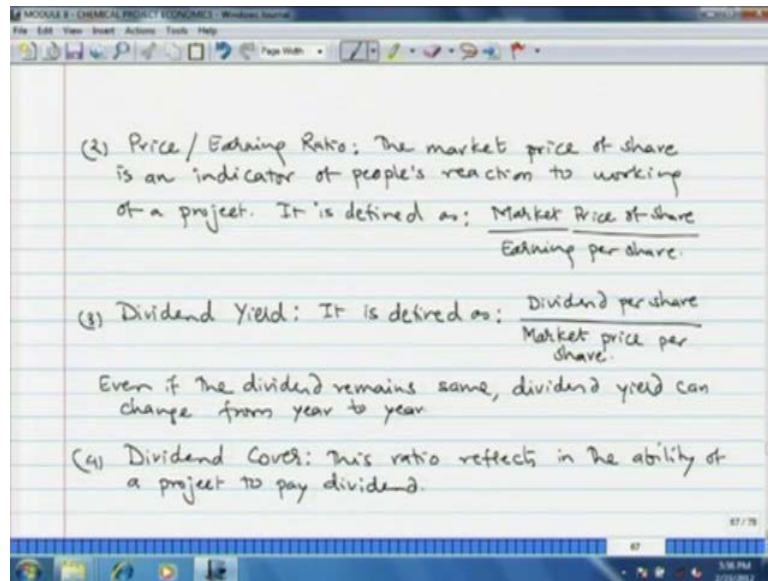 MODULE 8 - CHEMICAL PROJECT ECONOMICS - Windows Journal
File Edit View Insert Actions Tools Help
Page Width
(2) Price / Earning Ratio: The market price of share
is an indicator of people's reaction to working
of a project. It is defined as: Market Price of share
Earning per share.
(3) Dividend Yield: It is defined as: Dividend per share
Market price per
share.
Even if the dividend remains same, dividend yield can
change from year to year
(4) Dividend Cover: This ratio reflects in the ability of
a project to pay dividend.
67 / 78
67
5:36 PM
2/21/2012